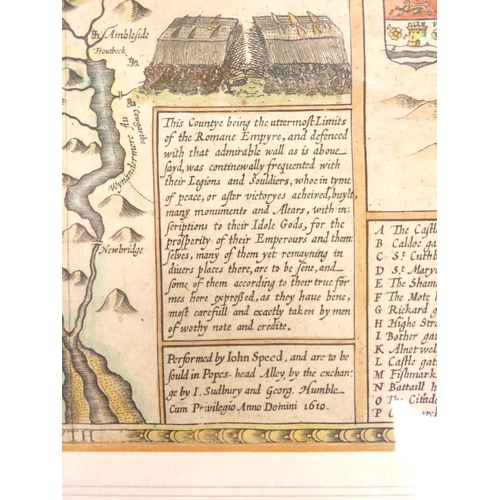 Ambleside
Troutbeck
Congarthe
Wynandermere flu
Newbridge
This Countye being the uttermost Limits
of the Romane Empyre, and defenced
with that admirable wall as is above
sayd, was continewally frequented with
their Legions and Souldiers, whoe in tyme
of peace, or after victoryes acheived, buylt
many monuments and Altars, with in-
scriptions to their Idole Gods, for the
prosperity of their Emperours and them
selves, many of them yet remayning in
divers places there, are to be sene, and
some of them according to their true for
mes here expressed, as they have bene,
most carefull and exactly taken by men
of wothy note and credite.
Performed by Iohn Speed, and are to be
sould in Popes-head Alley, by the exchan
ge by I. Sudbury and Georg. Humble
Cum Privilegio Anno Domini 1610.
A The Castl
B Caldoe ga
C St. Cuthb
D St. Mary
E The Sham
F The Mote
G Rickard g
H Highe Stre
I Bother gat
K Alnet wel
L Castle gat
M Fishmark
N Battaill h
O The Citad
P